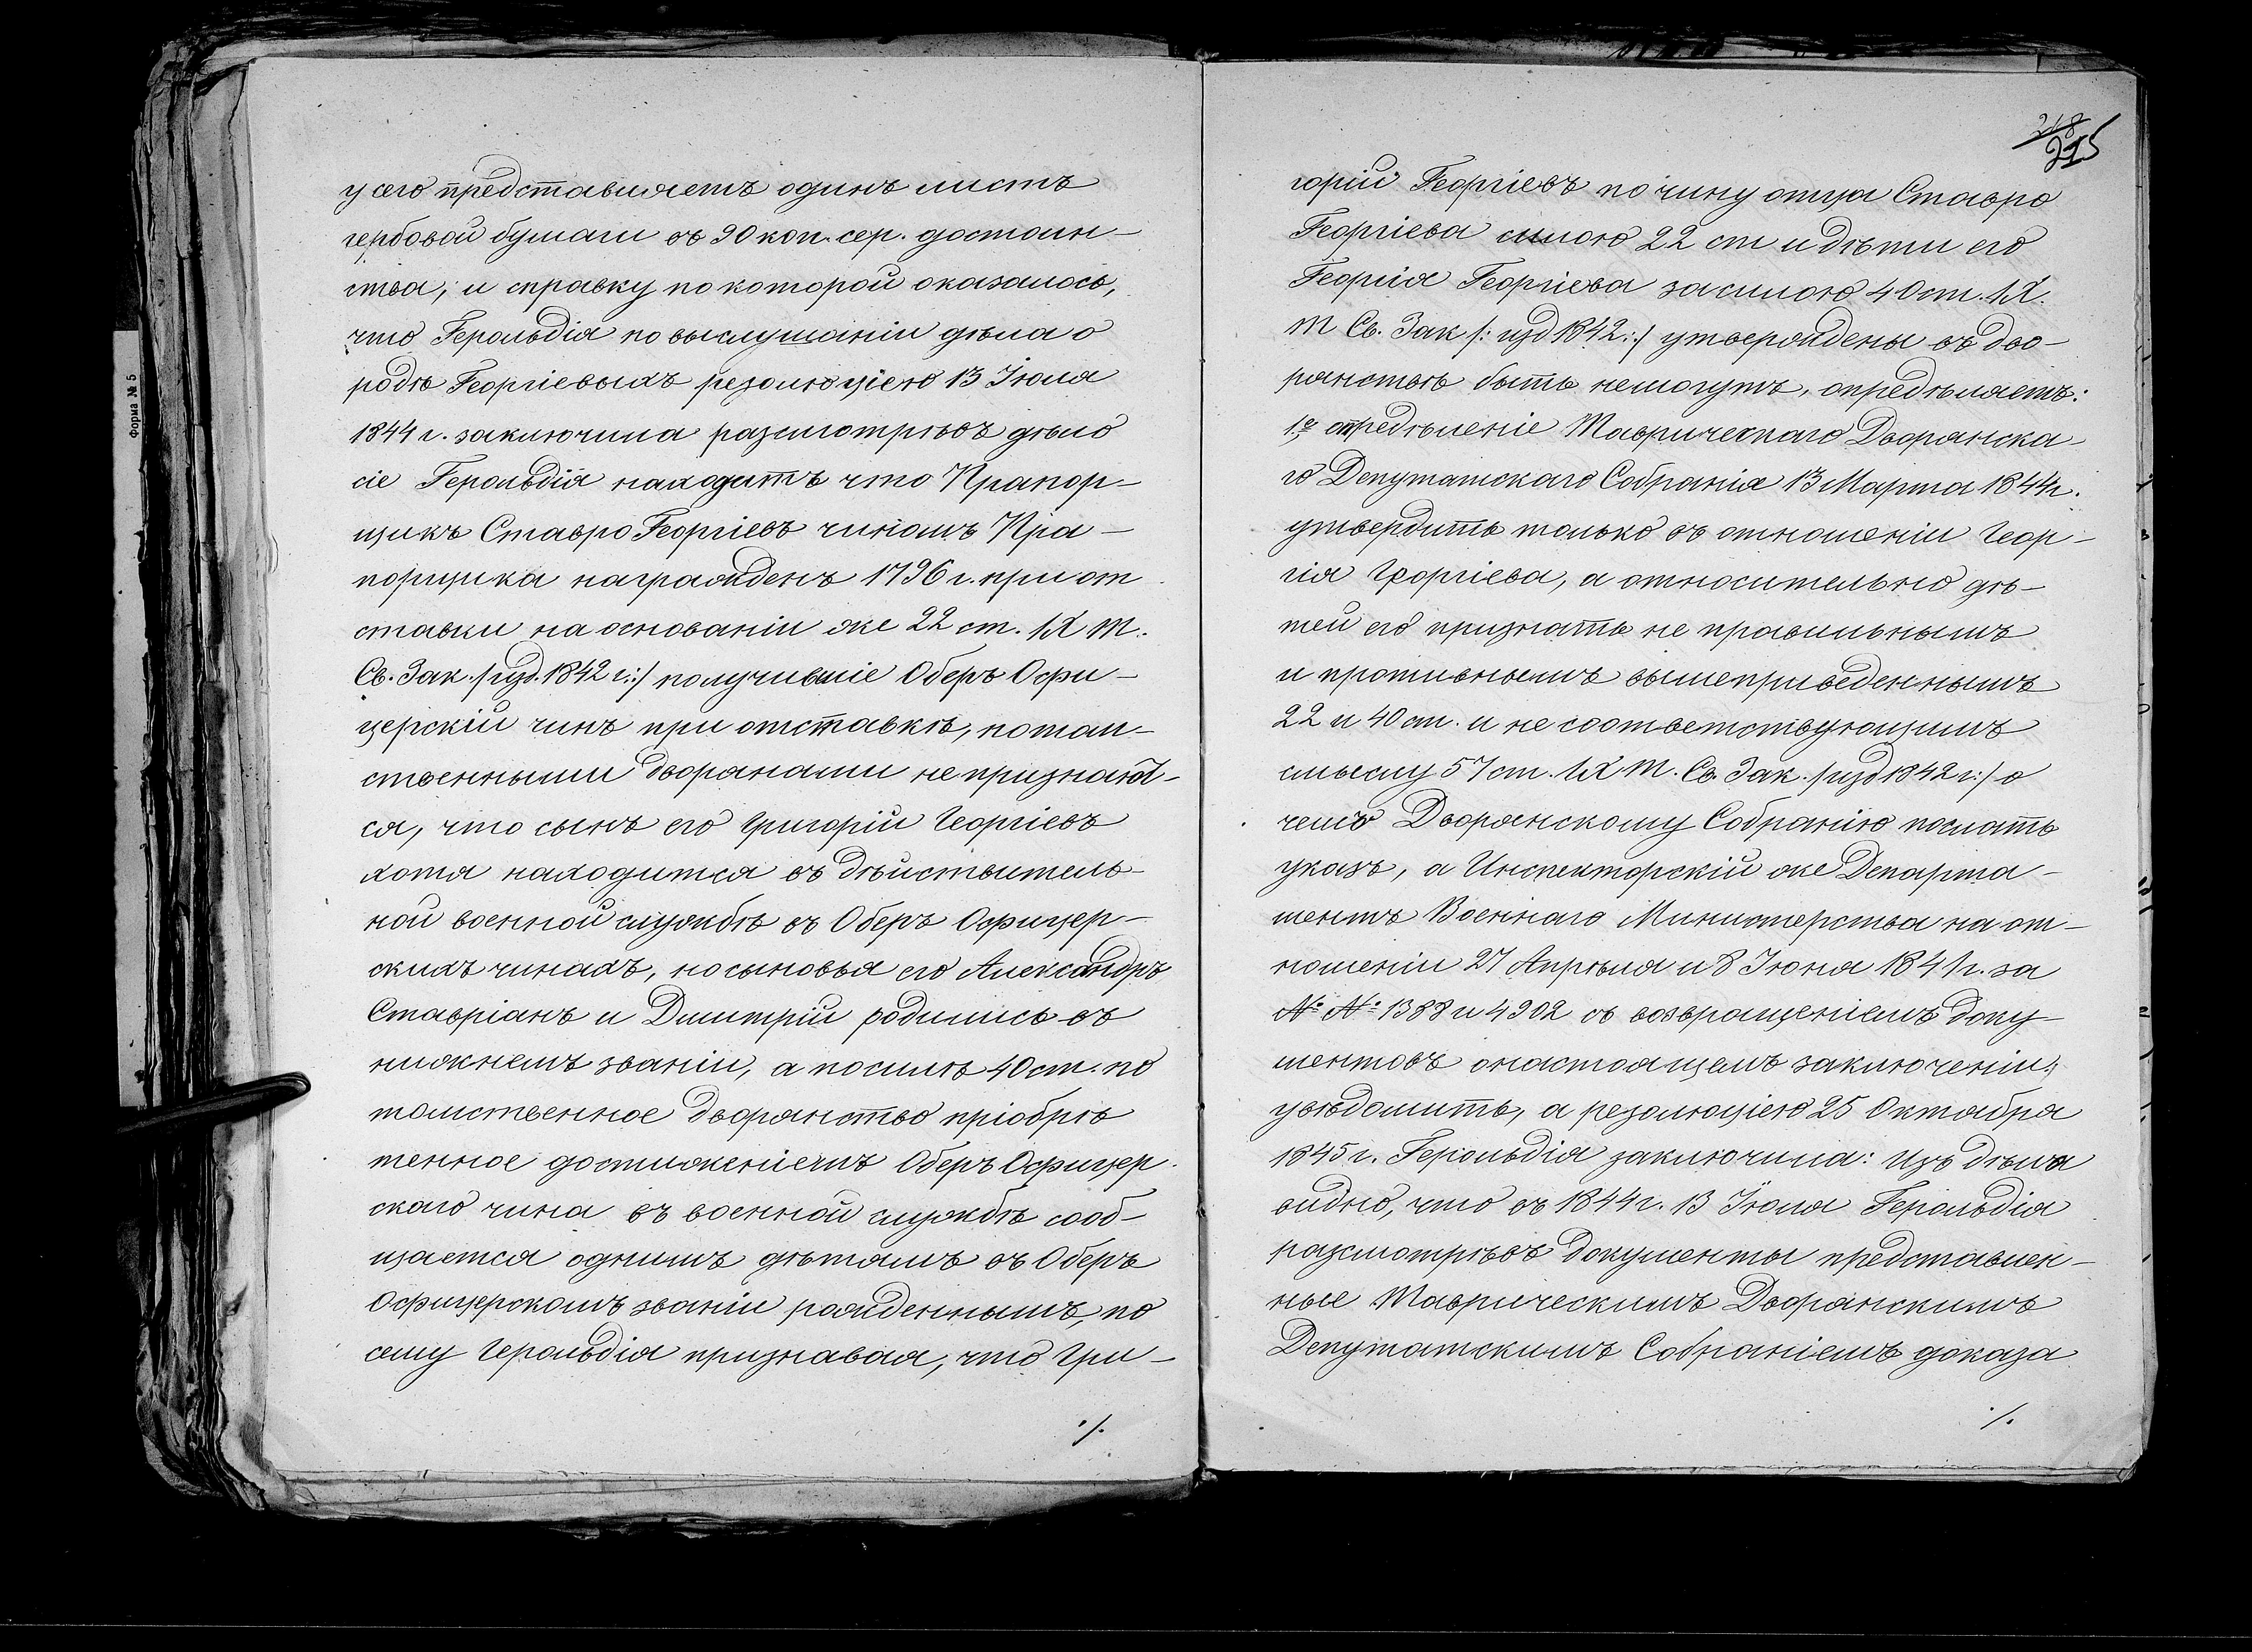 у сего представляетъ одинъ листъ
гербовой бумаги въ 90 коп. сер. достоин-
ства; и справку по которой оказалось,
что Герольдія по выслушаніи дѣла о
родѣ Георгіевыхъ резолюціею 13 Іюля
1844 г. заключила разсмотрѣвъ дѣло
сіе Герольдія находитъ что Прапор-
щикъ Ставро Георгіевъ чиномъ Пра-
порщика награжденъ 1796 г. при от
ставки на основаніи же 22 ст. IX т.
Св. Зак. /изд. 1842 г.:/ получившіе Оберъ Офи-
церскій чинъ при отставкѣ, потом-
ственными дворянами не признают-
ся, что сынъ его Григорій Георгіевъ
хотя находится въ дѣйствитель-
ной военной службѣ въ Оберъ Офицер-
скихъ чинахъ, но сыновья его Александръ
Ставріанъ и Дмитрій родились въ
нижнемъ званіи, а по силѣ 40 ст. по
томственное дворянство пріобрѣ
тенное достиженіемъ Оберъ Офицер
скаго чина въ военной службѣ сооб-
щается однимъ дѣтямъ въ Оберъ
Офицерскомъ званіи рожденнымъ, по
сему Герольдія признавая, что Гри-
./.
Форма № 5
218
215
горій Георгіевъ по чину отца Ставро
Георгіева силою 22 ст и дѣти его
Георгія Георгіева за силою 40 ст. IX.
т Св. Зак /: изд 1842.:/ утверждены въ дво-
рянствѣ быть немогутъ, опредѣляетъ:
1е опредѣленіе Таврическаго Дворянска-
го Депутатскаго Собранія 13 Марта 1844 г.
утвердить только въ отношеніи Геор-
гія Георгіева, а относительно дѣ-
тей его признать не правильнымъ
и противнымъ вышеприведеннымъ
22 и 40 ст. и не соответствующимъ
смыслу 57 ст. IX т. Св. Зак. /изд 1842 г:/ о
чемъ Дворянскому Собранію послать
указъ, а Инспекторскій же Департа-
ментъ Военнаго Министерства на от-
ношеніи 27 Апрѣля и 8 Іюня 1841 г. за
№ № 1388 и 4902 съ возвращеніемъ доку-
ментовъ о настоящемъ заключеніи,
увѣдомить, а резолюціею 25 Октября
1845 г. Герольдія заключила: Изъ дѣла
видно, что въ 1844 г. 13 Іюля Герольдія
разсмотрѣвъ документы представлен-
ные Таврическимъ Дворянскимъ
Депутатскимъ Собраніемъ доказа
./.